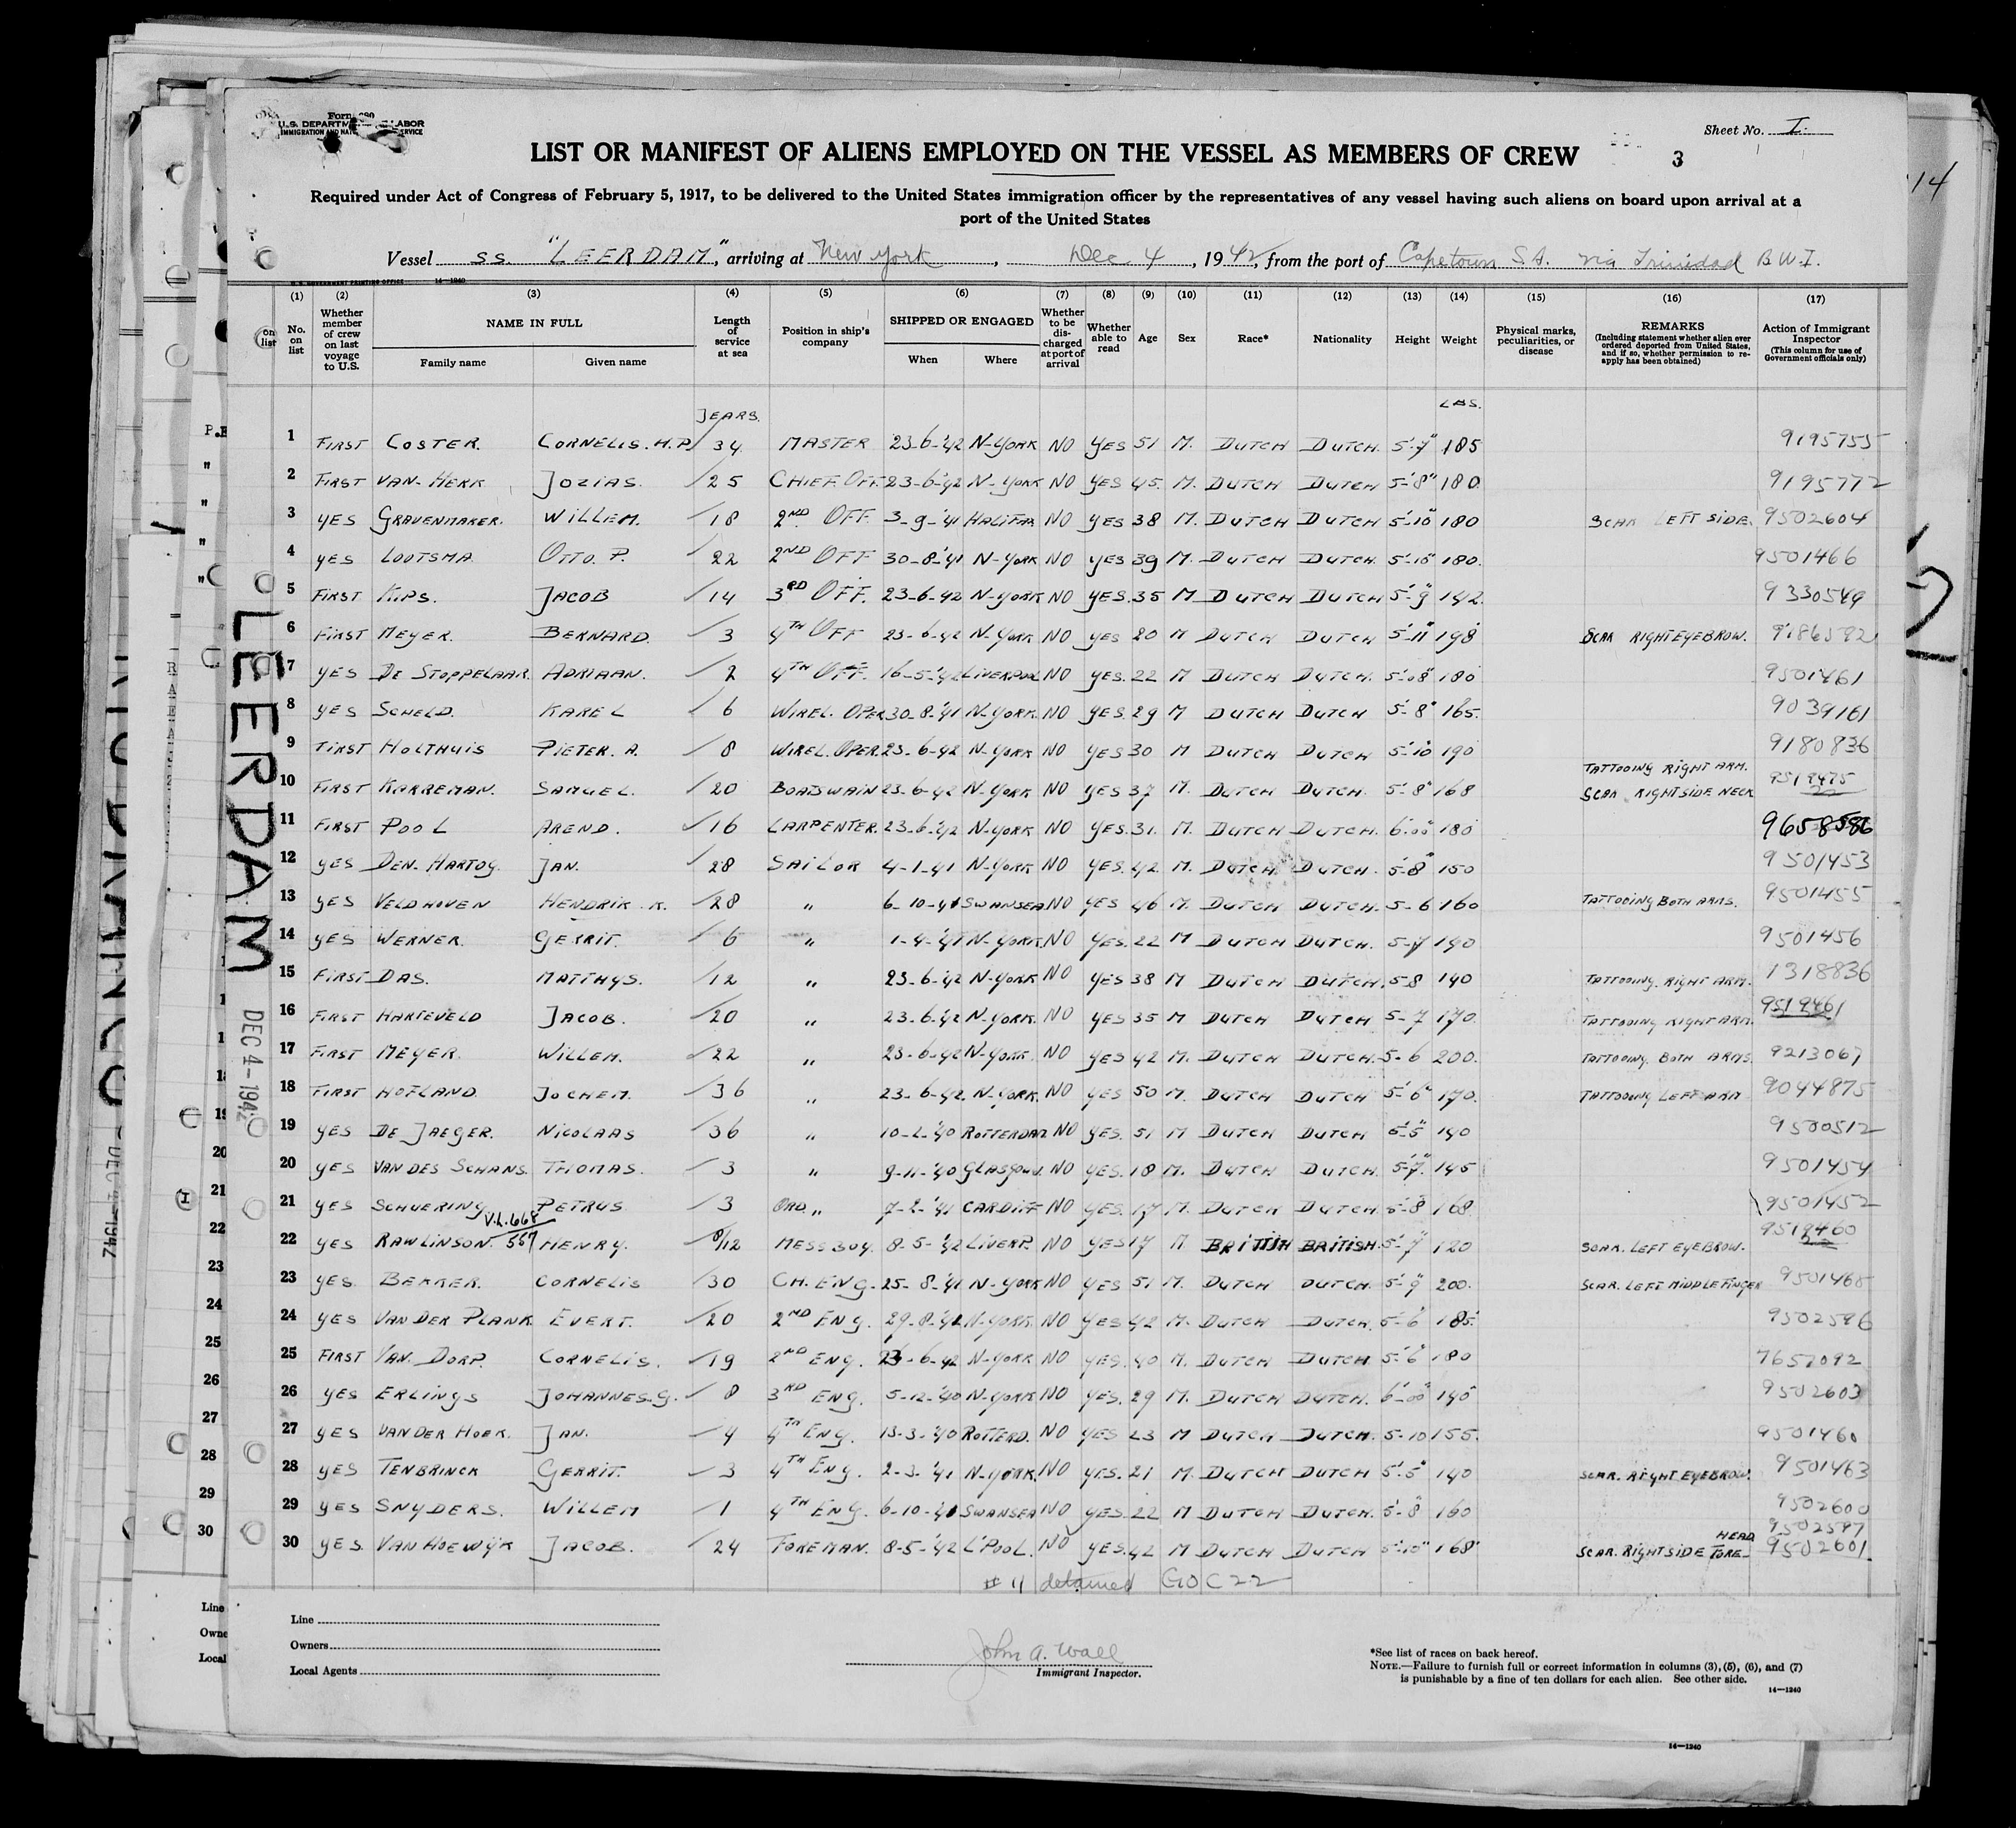 Sheet No. I
U.S. DEPARTMENT LABOR
LIST OR MANIFEST OF ALIENS EMPLOYED ON THE VESSEL AS MEMBERS OF CREW 3
14
Required under Act of Congress of February 5, 1917, to be delivered to the United States immigration officer by the representatives of any vessel having such aliens on board upon arrival at a
port of the United States
Vessel SS. "LEERDAM", arriving at New York, Dec. 4, 1942, from the port of Capetown S.A. via Trinidad B.W.I.
(1) (2) (3) (4) (5) (6) (7) (8) (9) (10) (11) (12) (13) (14) (15) (16) (17)
No. on list | Whether member of crew on last voyage to U.S. | NAME IN FULL Family name Given name | Length of service at sea | Position in ship's company | SHIPPED OR ENGAGED When Where | Whether to be discharged at port of arrival | Whether able to read | Age | Sex | Race* | Nationality | Height | Weight | Physical marks, peculiarities, or disease | REMARKS (Including statement whether alien ever ordered deported from United States, and if so, whether permission to reapply has been obtained) | Action of Immigrant Inspector (This column for use of Government officials only)
JEARS. LBS.
1 FIRST COSTER. CORNELIS. H.P. 34 MASTER 23-6-'42 N-YORK NO YES 51 M. DUTCH DUTCH. 5'-7" 185 9195755
2 FIRST VAN-HERK JOZIAS. 25 CHIEF OFF. 23-6-'42 N-YORK NO YES 45. M. DUTCH DUTCH 5'-8" 180. 9195772
3 YES GRAVENMAKER. WILLEM. 18 2ND OFF. 3-9-'41 HALIFAX NO YES 38 M. DUTCH DUTCH 5'-10" 180 SCAR LEFT SIDE. 9502604
4 YES LOOTSMA OTTO. P. 22 2ND OFF 30-8-'41 N-YORK NO YES 39 M. DUTCH DUTCH. 5'-10" 180. 9501466
5 FIRST KIPS. JACOB 14 3RD OFF. 23-6-42 N-YORK NO YES. 35 M DUTCH DUTCH 5'-9" 142. 9330549
6 FIRST MEYER. BERNARD. 3 4TH OFF 23-6-42 N-YORK NO YES 20 M DUTCH DUTCH 5'-11" 198 SCAR RIGHT EYEBROW. 9186592
7 YES DE STOPPELAAR. ADRIAAN. 2 4TH OFF. 16-5-'42 LIVERPOOL NO YES. 22 M DUTCH DUTCH. 180 9501461
8 YES SCHELD. KAREL 6 WIREL. OPER 30-8-'41 N-YORK. NO YES. 29 M DUTCH DUTCH 5'-8" 165. 9039161
9 FIRST HOLTHUIS PIETER. A. 8 WIREL. OPER. 23-6-42 N-YORK NO YES 30 M DUTCH DUTCH 5'-10 190 9180836
10 FIRST KARREMAN. SAMUEL. 20 BOATSWAIN 23-6-42 N-YORK NO YES 37 M. DUTCH DUTCH. 5'-8" 168 TATTOOING RIGHT ARM. SCAR RIGHT SIDE NECK 9519475
11 FIRST POOL AREND. 16 CARPENTER. 23-6-'42 N-YORK NO YES. 31. M. DUTCH DUTCH. 6'-00" 180 9658586
12 YES DEN. HARTOG. JAN. 28 SAILOR 4-1-41 N-YORK NO YES. 42. M. DUTCH. DUTCH. 5'-8" 150 9501453
13 YES VELDHOVEN HENDRIK. K. 28 " 6-10-41 SWANSEA NO YES 46 M. DUTCH DUTCH. 5-6 160 TATTOOING BOTH ARMS. 9501455
14 YES WERNER. GERRIT. 6 " 1-4-'41 N-YORK NO YES. 22 M DUTCH DUTCH. 5-7 190 9501456
15 FIRST DAS. MATTHYS. 12 " 23-6-'42 N-YORK NO YES 38 M DUTCH DUTCH. 5-8 140 TATTOOING. RIGHT ARM. 1318836
16 FIRST HARTEVELD JACOB. 20 " 23-6-'42 N-YORK. NO YES 35 M DUTCH DUTCH 5-7 170. TATTOOING RIGHT ARM. 9519461
17 FIRST MEYER. WILLEM. 22 " 23-6-42 N-YORK. NO YES 42 M. DUTCH DUTCH. 5-6 200. TATTOOING. BOTH ARMS. 9213067
18 FIRST HOFLAND. JOCHEM. 36 " 23-6-42. N-YORK. NO YES 50 M. DUTCH DUTCH 5'-6" 170. TATTOOING LEFT ARM 9044875
19 YES DE JAEGER. NICOLAAS 36 " 10-2-'40 ROTTERDAM NO YES. 51 M DUTCH DUTCH 5'-5" 190 9500512
20 YES VAN DES SCHANS. THOMAS. 3 " 9-11-'40 GLASGOW. NO YES. 18 M. DUTCH DUTCH. 5'-7". 145 9501454
21 YES SCHUERING PETRUS 3 ORD. " 7-2-'41 CARDIFF NO YES. 17 M. DUTCH DUTCH. 5-8 168 9501452
V.L. 668
22 YES RAWLINSON. 567 HENRY. 8/12 MESSBOY. 8-5-'42 LIVERP. NO YES 17 M. BRITISH BRITISH. 5'-7" 120 SCAR. LEFT EYEBROW. 9519460
23 YES. BEKKER. CORNELIS 30 CH. ENG. 25-8-'41 N-YORK NO YES 51 M. DUTCH DUTCH. 5'-9" 200. SCAR. LEFT MIDDLE FINGER 9501465
24 YES VAN DER PLANK EVERT. 20 2ND ENG. 29-8-'42 N-YORK. NO YES 42 M. DUTCH DUTCH. 5'-6 185. 9502596
25 FIRST VAN. DORP. CORNELIS. 19 2ND ENG. 23-6-42 N-YORK NO YES. 40 M. DUTCH DUTCH 5'-6" 180 7657092
26 YES ERLINGS JOHANNES. G. 8 3RD ENG. 5-12-'40 N-YORK NO YES. 29 M. DUTCH DUTCH. 6'-00" 190 9502603
27 YES VAN DER HOEK. JAN. 4 4TH ENG. 13-3-'40 ROTTERD. NO YES 23 M DUTCH DUTCH. 5-10 155. 9501460
28 YES TENBRINCK GERRIT. 3 4TH ENG. 2-3-'41 N-YORK. NO YES. 21 M. DUTCH DUTCH 5'-5" 140 SCAR. RIGHT EYEBROW. 9501463
29 YES SNYDERS. WILLEM 1 4TH ENG. 6-10-'41 SWANSEA NO YES. 22 M DUTCH DUTCH. 5'-8 160 9502600
9502597
30 YES. VAN HOEWIJK JACOB. 24 FOREMAN. 8-5-'42 L'POOL. NO YES. 42 M DUTCH DUTCH 5'-10" 168 SCAR. RIGHT SIDE FORE-HEAD 9502601
# 11 detained GOC 22
LEERDAM
DEC 4-1942
Line
Owners
Local Agents
John A. Wall
Immigrant Inspector.
*See list of races on back hereof.
NOTE.—Failure to furnish full or correct information in columns (3), (5), (6), and (7)
is punishable by a fine of ten dollars for each alien. See other side.
14—1240
14—1240